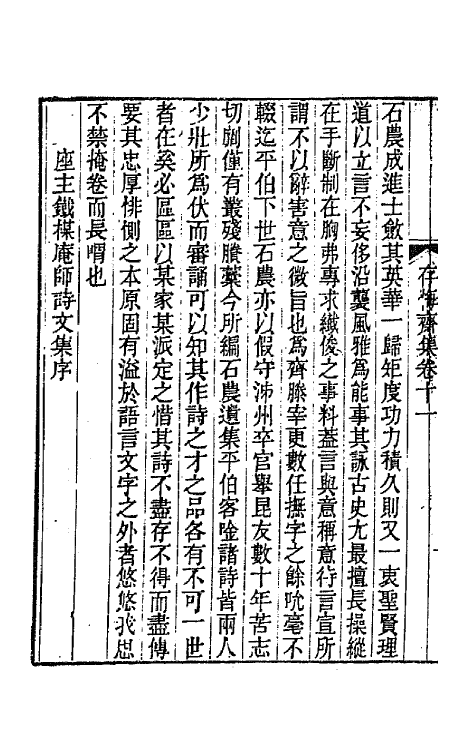 存悔齋集卷十一
石農成進士斂其英華一歸矩度功力積久則又一衷聖賢理
道以立言不妄侈沿襲風雅爲能事其詠古史尤最擅長操縱
在手斷制在胸弗專求纖俊之事料蓋言與意稱意行言宣所
謂不以辭害意之微旨也爲齊滕宰更數任撫字之餘吮毫不
輟迄平伯下世石農亦以假守沛州卒官舉昆友數十年苦志
切劘僅有叢殘賸藁今所編石農遺集平伯客唫諸詩皆兩人
少壯所爲伏而審誦可以知其作詩之才之品各有不可一世
者在奚必區區以某家某派定之惜其詩不盡存不得而盡傳
要其忠厚悱惻之本原固有溢於語言文字之外者悠悠我思
不禁掩卷而長喟也
座主鐵楳庵師詩文集序